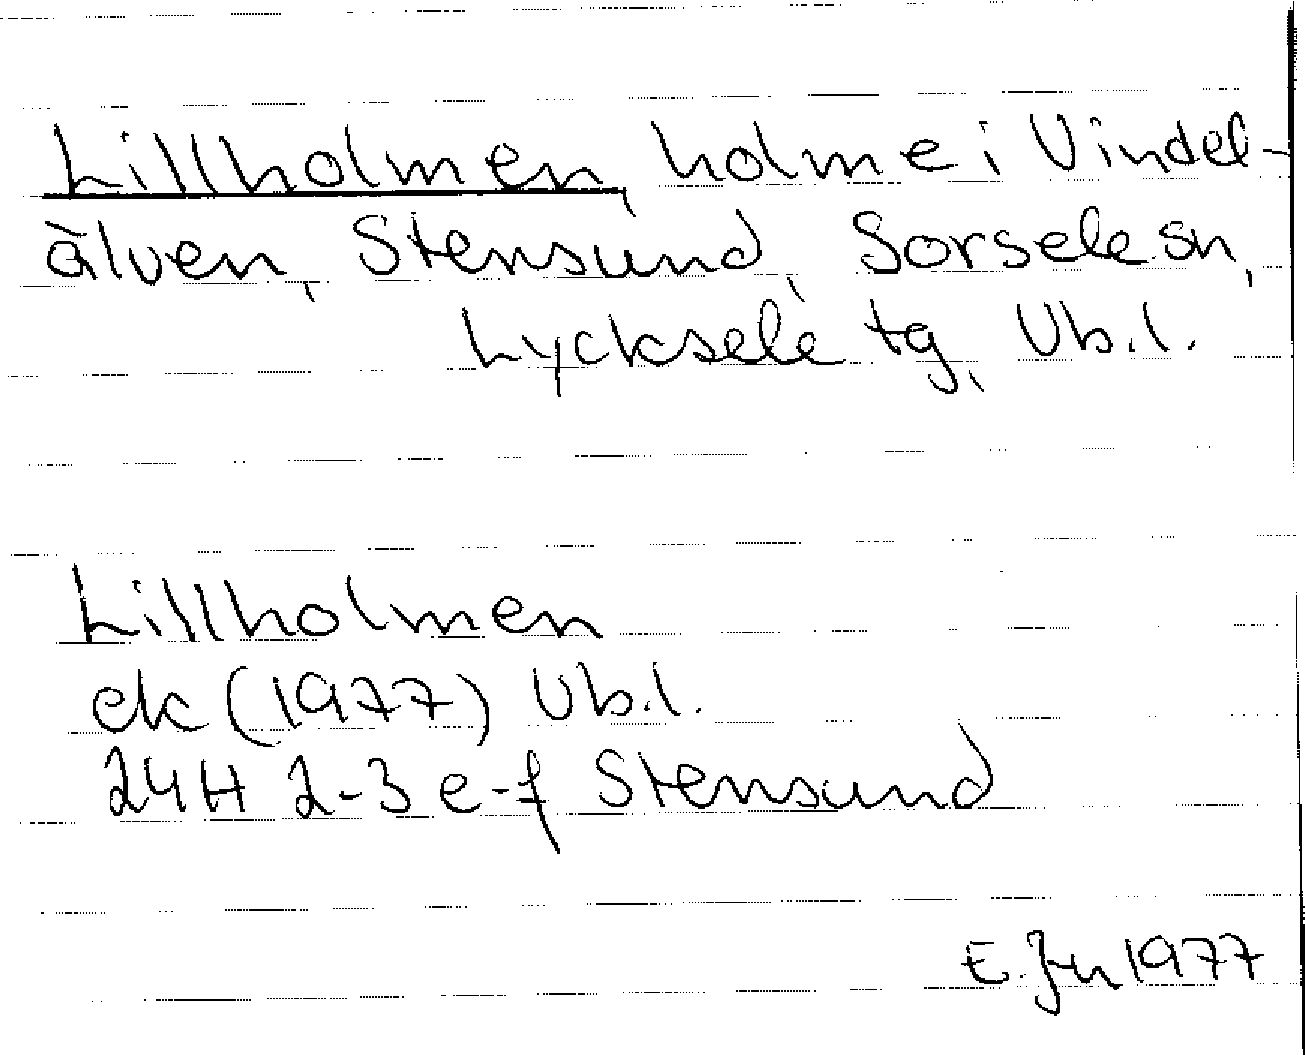 Lillholmen, holme i Vindel-
älven, Stensund, Sorsele sn,
Lycksele tg, Vb.l.
Lillholmen
ek (1977) Vb.l.
24H 2-3 e-f Stensund
E. 1977